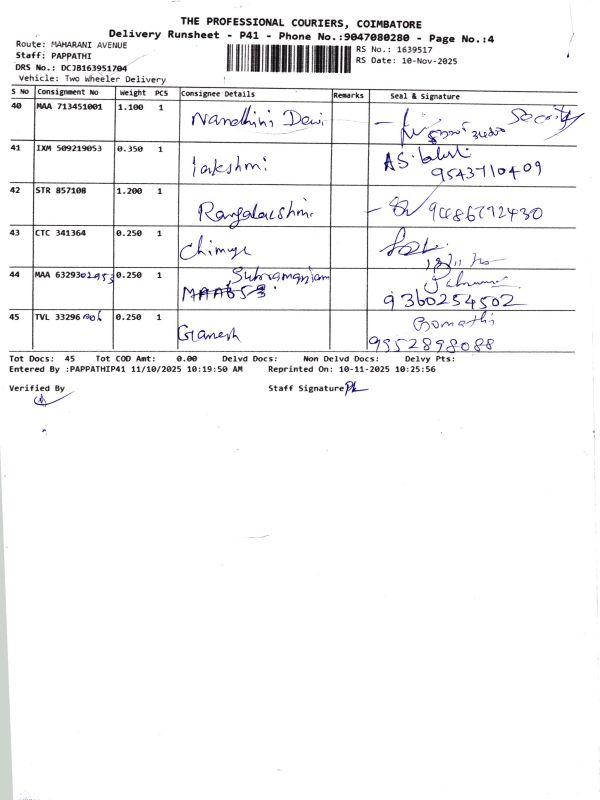 THE PROFESSIONAL COURIERS, COIMBATORE
Delivery Runsheet - P41 - Phone No.:9047080280 - Page No.:4
Route: MAHARANI AVENUE
RS No.: 1639517
Staff: PAPPATHI
RS Date: 10-Nov-2025
DRS No.: DCJB163951704
Vehicle: Two Wheeler Delivery
S No Consignment No Weight PCS Consignee Details Remarks Seal & Signature
40 MAA 713451001 1.100 1 Nandhini Devi Security
41 IXM 509219053 0.350 1 lakshmi
9543710409
42 STR 857108 1.200 1 Rangalakshmi 9486772430
43 CTC 341364 0.250 1
44 MAA 6329302953 0.250 1 Subramaniam
9360254502
45 TVL 33296 0.250 1 Ganesh Gomathi
9952898088
Tot Docs: 45 Tot COD Amt: 0.00 Delvd Docs: Non Delvd Docs: Delvy Pts:
Entered By :PAPPATHIP41 11/10/2025 10:19:50 AM Reprinted On: 10-11-2025 10:25:56
Verified By Staff Signature